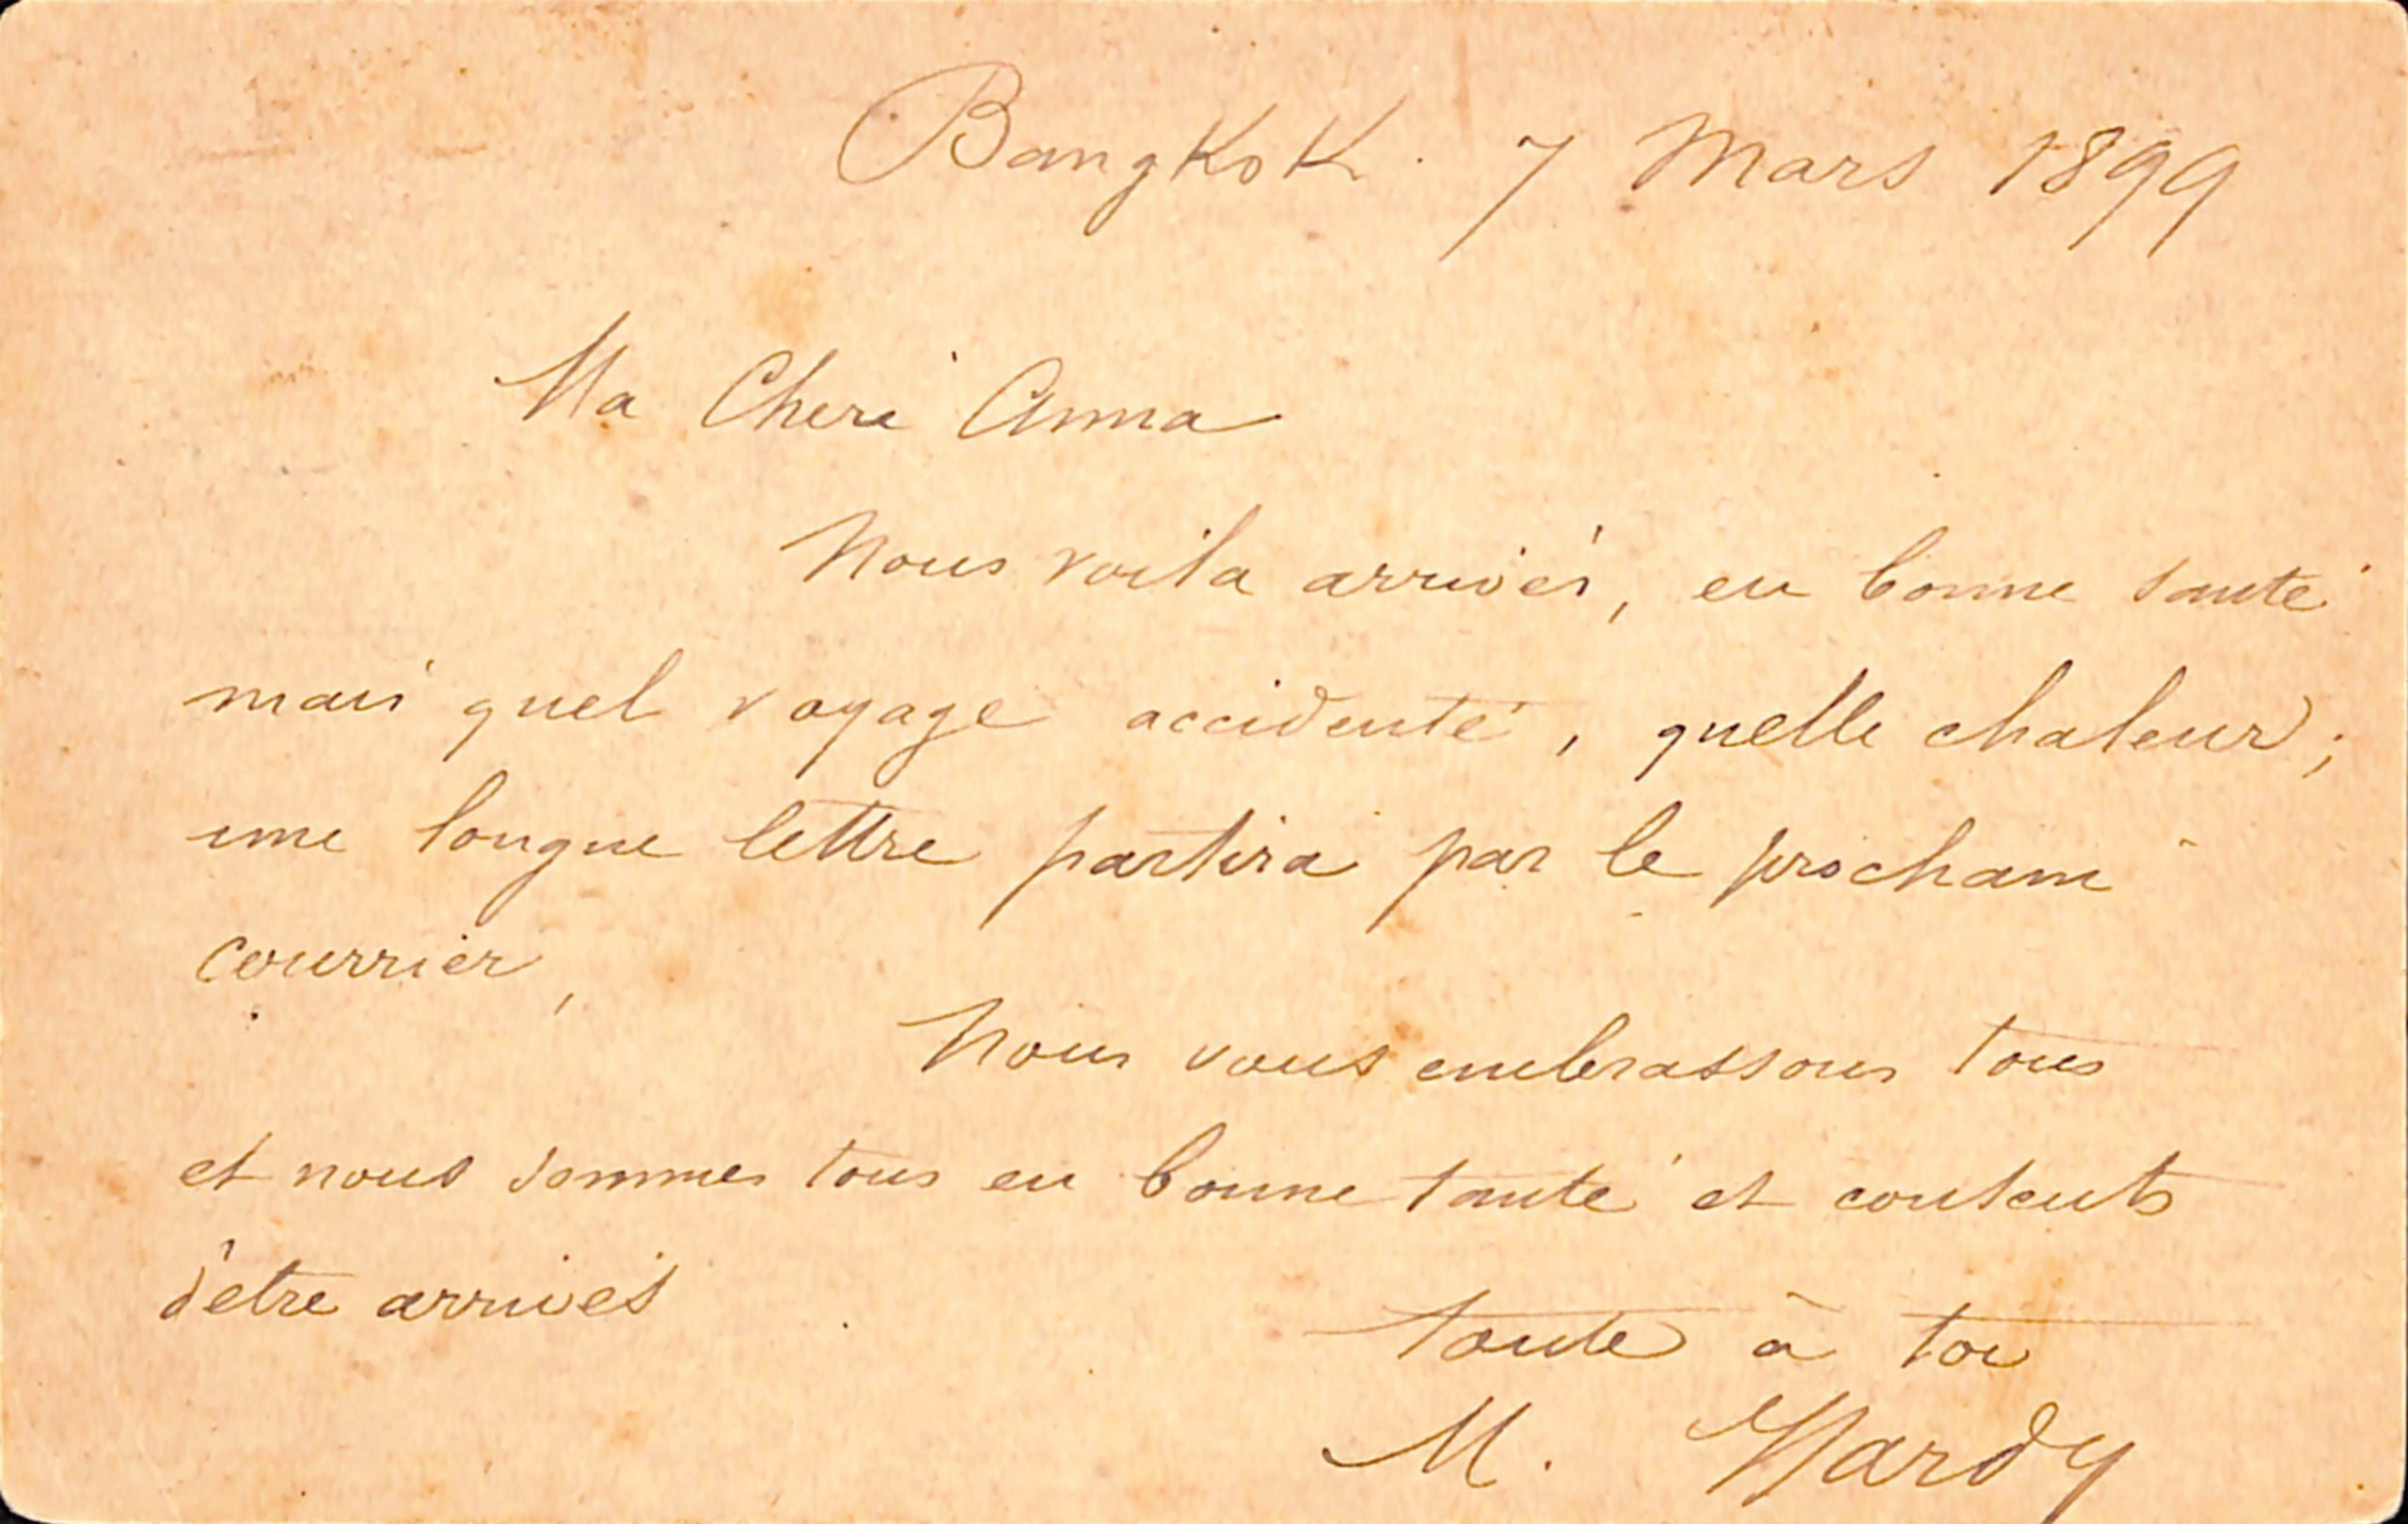 Bangkok. 7 Mars 1899
Ma Cheré Anna
Nous voila arrivés, en bonne santé
mais quel voyage accidenté, quelle chaleur;
une longue lettre partira par le prochain
courrier,
Nous vous embrassons tous
et nous sommes tous en bonne santé et contents
d'etre arrivés
toute à toi
M. Hardy